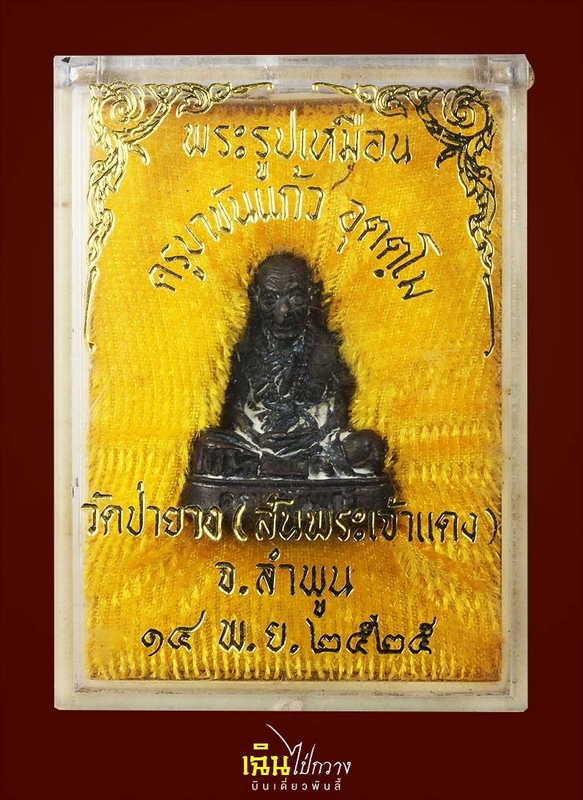 พระรูปเหมือน
ครูบาขันแก้ว อุตฺตโม
วัดป่ายาง (สันพระเจ้าแดง)
จ.ลำพูน
๑๔ พ.ย. ๒๕๒๕
เฉินไป่กวาง
บินเดี่ยวพันลี้